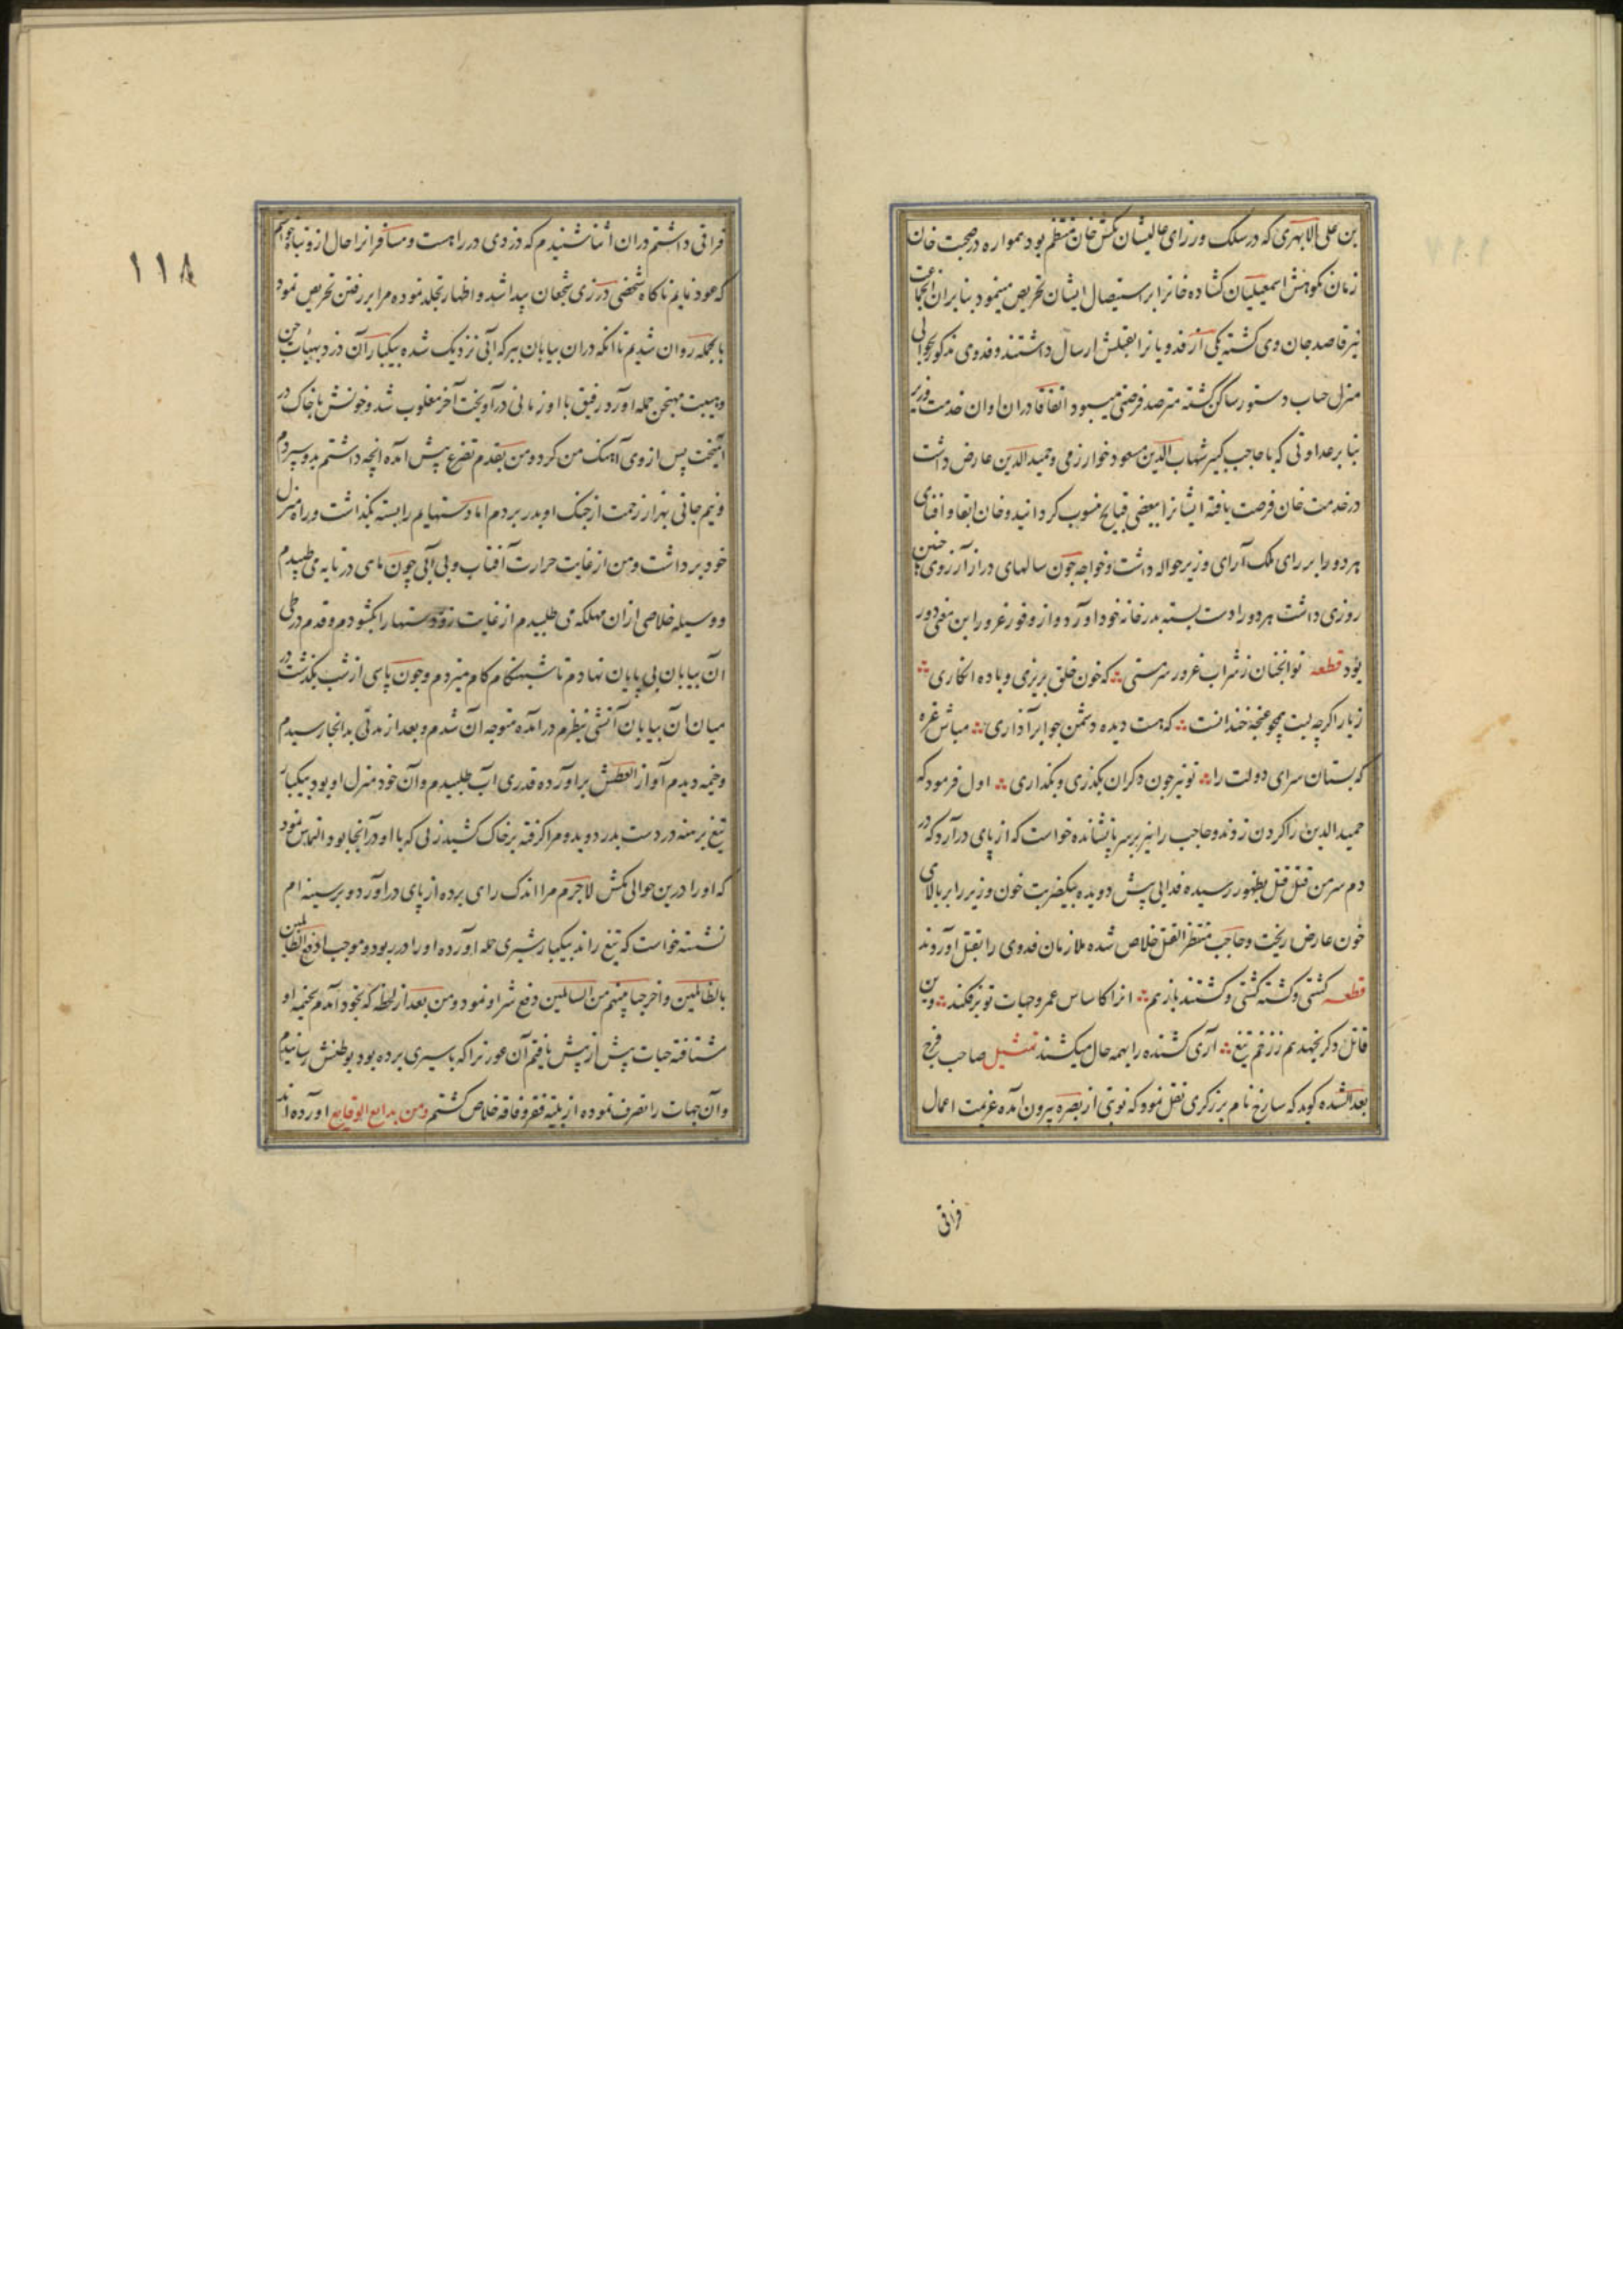 بن علی الابهری که در سلک وزرای عالیشان تکش خان منتظم بود همواره در صحبت خان
زمان نکوهش اسمعیلیان کشاده خانرا بر استیصال ایشان تحریص مینمود بنا بران انجماعت
نیز قاصد جان وی کشته یکی از فدویانرا بقتلش ارسال داشتند و فدوی مذکور بحوالی
منزل جناب دستور ساکن کشته مترصد فرصتی میبود اتفاقا دران اوان خدمت وزیر
بنا بر عداوتی که با حاجب کبیر شهاب الدین مسعود خوارزمی و حمید الدین عارض داشت
در خدمت خان فرصت یافته ایشانرا ببعضی قبایح منسوب کردانید و خان ابقا و افنای
هر دو را بر رای ملک آرای وزیر حواله داشت و خواجه چون سالهای دراز آرزوی چنین
روزی داشت هر دو را دست بسته بدر خانه خود آورد و از وفور غرور ازین معنی دور
بود قطعه تو انچنان ز شراب غرور سرمستی که خون خلق بریزی و باده انکاری
زیار اکرچه لبت همچو غنچه خندانست که هست دیده دشمن چو ابر آذاری مباش غره
که بستان سرای دولت را تو نیز چون دکران بکذری و بکذاری اول فرمود که
حمید الدین را کردن زدند و حاجب را نیز بر سر پا نشانده خواست که از پای درآرد که در
دم سر من قتل قتل بظهور رسیده فدایی پیش دویده بیکضربت خون وزیر را بر بالای
خون عارض ریخت و حاجب منتظر القتل خلاص شده ملازمان فدوی را بقتل آوردند
قطعه کشتی و کشته کشتی و کشتند باز هم انرا کاساس عمر و حیات تو برفکند وین
قاتل دکر نجهد هم ز زخم تیغ آری کشنده را بهمه حال میکشند تمثیل صاحب فرج
بعد الشده کوید که سارخ نام برزکری نقل نمود که نوبتی از بصره بیرون آمده عزیمت اعمال
فراتی
١١٨
فراتی داشتم دران اثنا شنیدم که دزدی در راهست و مسافرانرا حال ازو تباه خواستم
که عود نمایم ناکاه شخصی در زی شجعان پیدا شد و اظهار تجلد نموده مرا بر رفتن تحریص نمود
بالجمله روان شدیم تا انکه دران بیابان ببرکه آبی نزدیک شده بیکبار آن دزد بهیأت
و هیبت حمله آورد رفیق با او زمانی درآویخت آخر مغلوب شد و خونش با خاک در
آمیخت پس از وی آهنک من کرد و من بقدم تضرع پیش آمده آنچه داشتم بدو سپردم
و نیم جانی بهزار زحمت از چنک او بدر بردم اما دستهایم را بسته بکذاشت و راه منزل
خود برداشت و من از غایت حرارت آفتاب و بی آبی چون ماهی در تابه می طپیدم
و وسیله خلاصی ازان مهلکه می طلبیدم از غایت زور دستها را بکشودم و قدم در طی
آن بیابان بی پایان نهادم تا شبهنکام کام میزدم و چون پاسی از شب بکذشت در
میان آن بیابان آتشی بنظرم درآمده متوجه آن شدم و بعد از مدتی بدانجا رسیدم
و خیمه دیدم آواز العطش برآورده قدری آب طلبیدم و آن خود منزل او بود بیکبار
تیغ برهنه در دست بدر دوید و مرا کرفته بر خاک کشید زنی که با او در آنجا بود التماس نمود
که او را درین حوالی مکش لاجرم مرا اندک رای برده از پای درآورد و بر سینه ام
نشسته خواست که تیغ راند بیکبار شیری حمله آورده او را در ربود و موجب ادفع الظالمین
بالظالمین و اخرجنا منهم من السالمین دفع شر او نمود و من بعد از لحظه که بخود آمدم بخیمه او
شتافته حیات پیش از پیش یافتم آن عورترا که باسیری برده بود بوطنش رسانیدم
و آن جهات را تصرف نموده از بلیه فقر و فاقه خلاص کشتم ومن بدایع الوقایع آورده اند